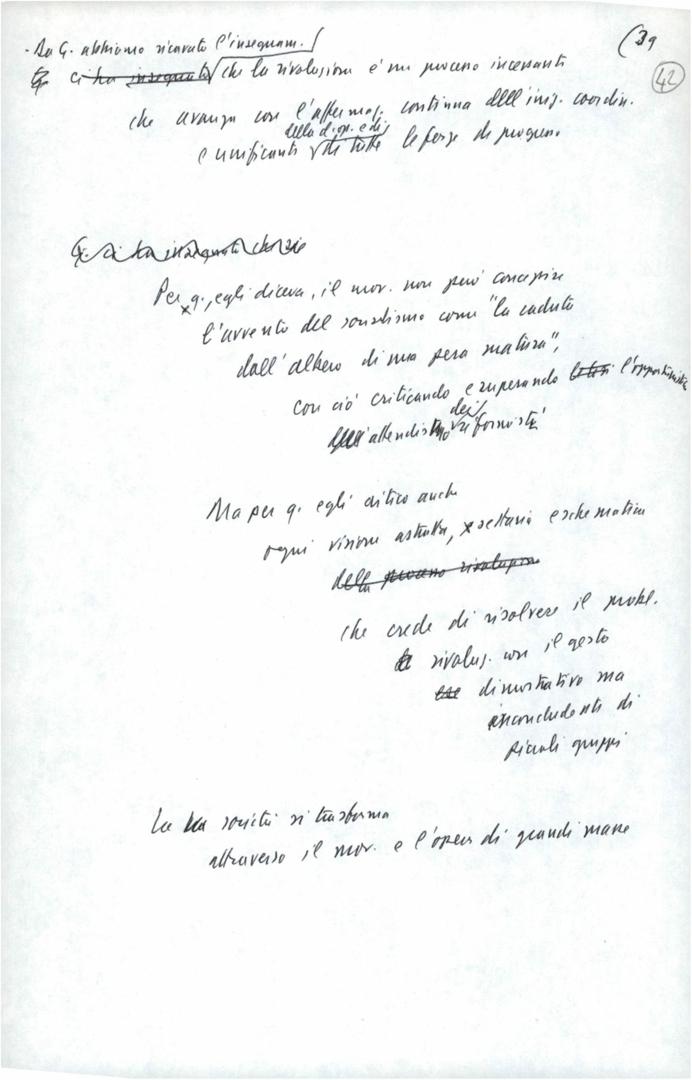 (39
42
- Da G. abbiamo ricavato l'insegnam.
G. ci ha insegnato che la rivoluzione è un processo incessante
che avanza con l'affermaz. continua dell'iniz. coordin.
della dir. e di
e unificante di tutte le forze di progresso
G. ci ha insegnato che
Per q., egli diceva, il mov. non può concepire
l'avvento del socialismo come "la caduta
dall'albero di una pera matura",
con ciò criticando e superando l'opportunistico
dei
attendismo riformisti
Ma per q. egli critico anche
ogni visione astratta, settaria e schematica
della processo rivoluzion
che crede di risolvere il probl.
rivoluz. con il gesto
dimostrativo ma
inconcludente di
piccoli gruppi
La società si trasforma
attraverso il mov. e l'opera di grandi masse